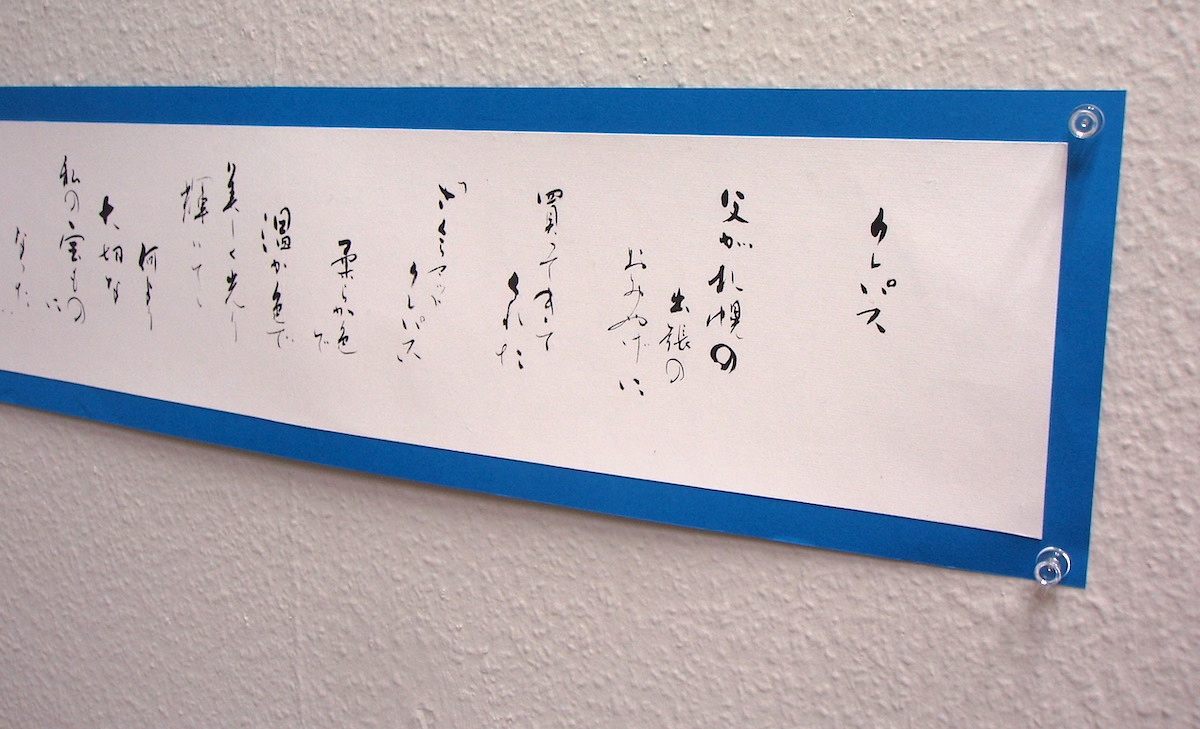 クレパス
父が札幌の
出張の
おみやげに
買ってきて
くれた
さくらマット
クレパス
柔らか色で
温か色で
美しく光り
輝いて
何より
大切な
私の宝ものに
なった